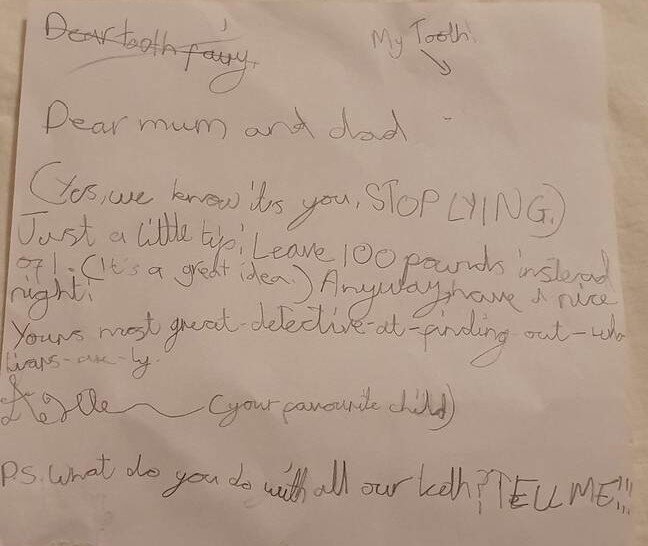 Dear tooth fairy,
My Tooth!
Dear mum and dad
(Yes, we know its you, STOP LYING.)
Just a little tip; Leave 100 pounds instead
of 1. (It's a great idea.) Anyway, have a nice
night!
Yours most great-detective-at-finding out-who
liars-are-ly.
(your favourite child)
P.S. What do you do with all our teeth? TELL ME!!!